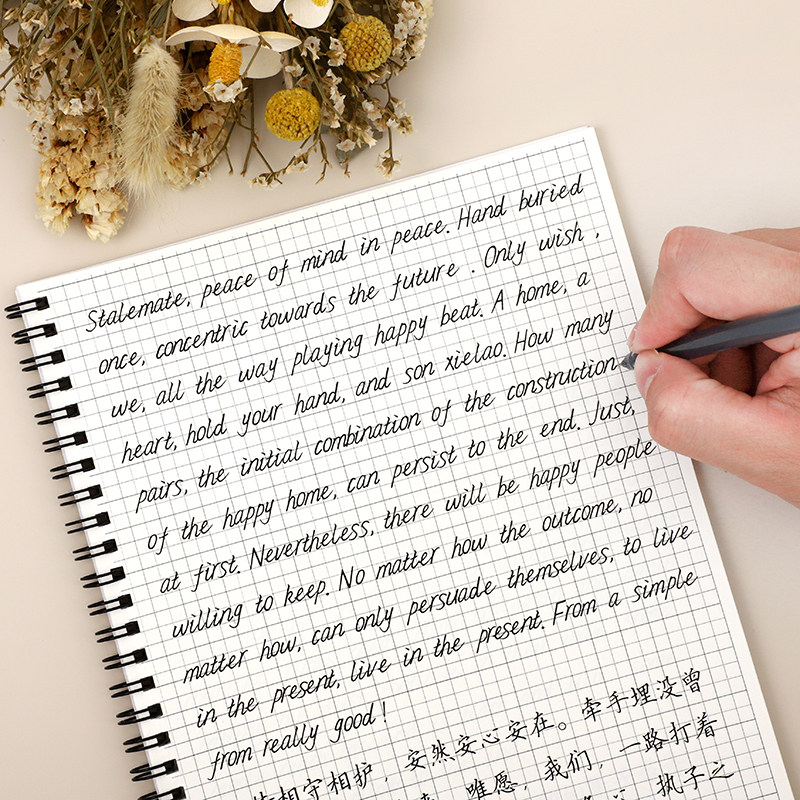 Stalemate, peace of mind in peace. Hand buried
once, concentric towards the future . Only wish ,
we, all the way playing happy beat. A home, a
heart, hold your hand, and son xielao. How many
pairs, the initial combination of the construction
of the happy home, can persist to the end. Just,
at first. Nevertheless, there will be happy people
willing to keep. No matter how the outcome, no
matter how, can only persuade themselves, to live
in the present, live in the present. From a simple
from really good!
相守相护，安然安心安在。牵手埋没曾
唯愿，我们，一路打着
执子之